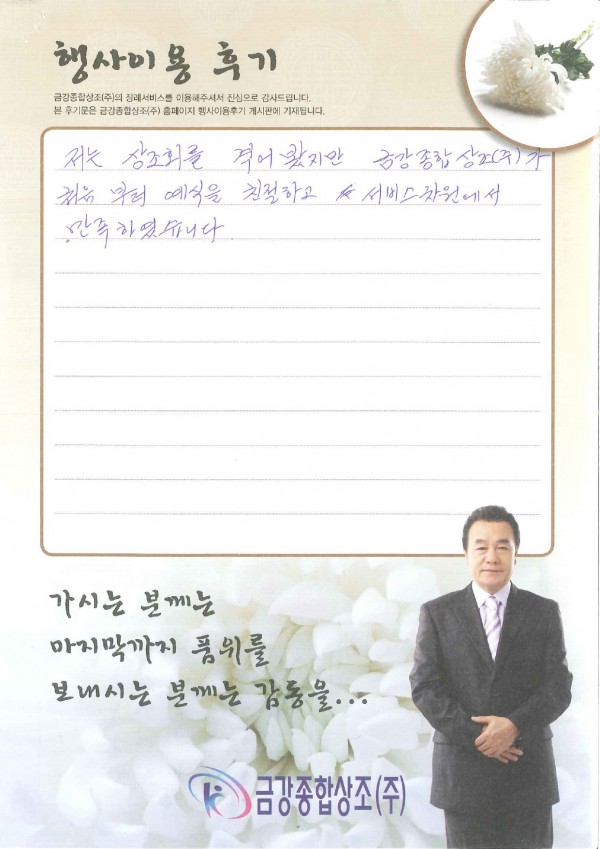 행사이용 후기
금강종합상조(주)의 장례서비스를 이용해주셔서 진심으로 감사드립니다.
본 후기문은 금강종합상조(주) 홈페이지 행사이용후기 게시판에 기재됩니다.
저는 상조회를 격어 봤지만 금강종합상조(주)가
처음 부터 예식을 친절하고 서비스차원에서
만족하였습니다
가시는 분께는
마지막까지 품위를
보내시는 분께는 감동을...
금강종합상조(주)